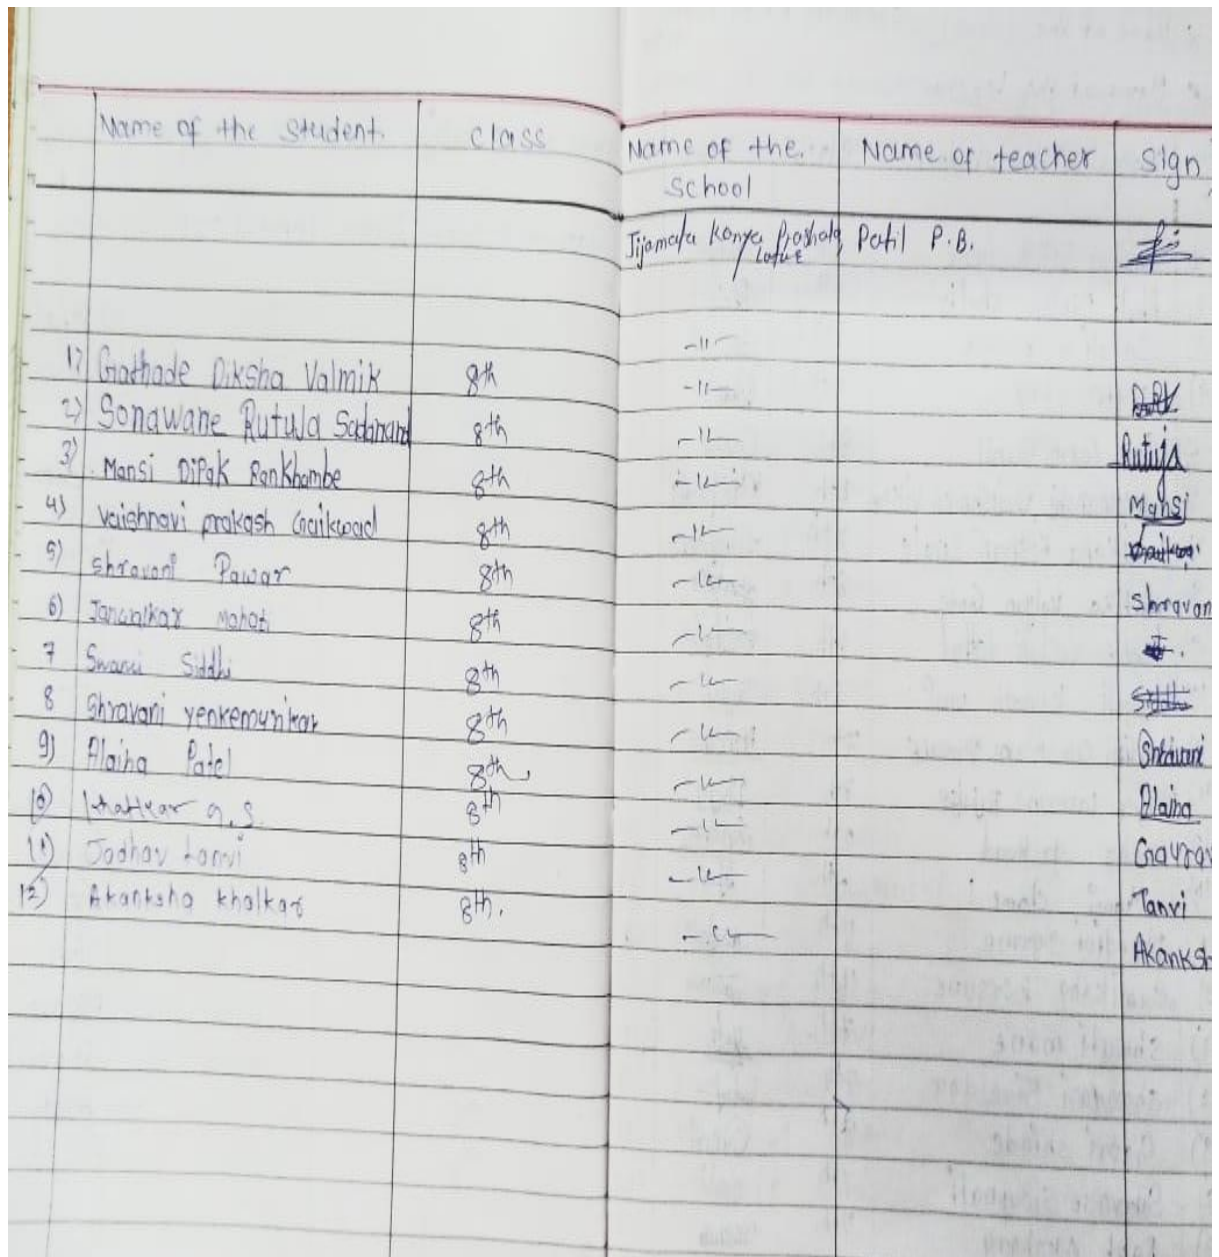 Name of the Student. Class Name of the. Name of teacher Sign
School
Jijamata Kanya Prashala, Patil P.B.
Latur
-11-
1) Gathade Diksha Valmik 8th -11-
2) Sonawane Rutuja Sadanand 8th -11- Rutuja
3) Mansi Dipak Rankhambe 8th -11- Mansi
4) Vaishnavi prakash Gaikwad 8th -11- Gaikwad
5) Shravani Pawar 8th -11- Shravan
6) Janwalkar 8th -11-
7 Swami Siddhi 8th -11- Siddhi
8 Shravani yenkemunikar 8th -11- Shravani
9) Alaina Patel 8th -11- Alaina
10) Khatkar G.S. 8th -11-
11) Jadhav tanvi 8th -11- Tanvi
12) Akanksha khalkar 8th. -11- Akanksh